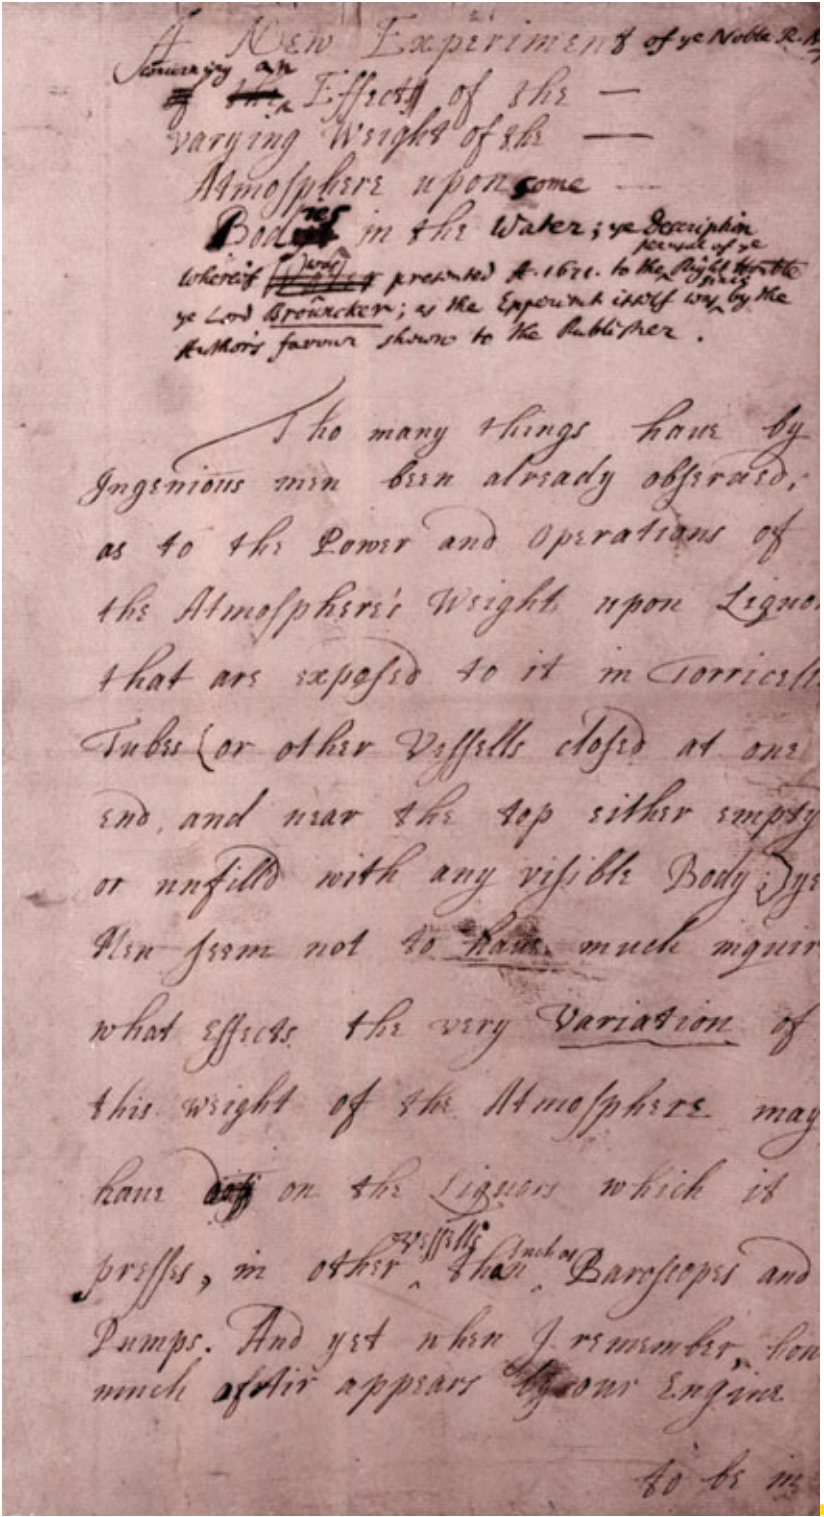 A New Experiment of ye Noble R. B
concerning an
of the Effect of the —
varying Weight of the —
Atmosphere upon some —
Bodies in the Water; ye Description
perusal of ye
whereof was presented A. 1671. to the Right Honble
since
ye Lord Brouncker; as the Experimt itself was by the
Author's favour shown to the Publisher.
Tho many things have by
Ingenious men been already observed,
as to the Power and Operations of
the Atmosphere's Weight upon Liquo
that are exposed to it in Torricelli
Tubes (or other Vessells closed at one
end, and near the top either empty
or unfilld with any visible Body;) ye
Men seem not to have much inquir
what effects the very Variation of
this weight of the Atmosphere may
have on the Liquors which it
vessells such as
presses, in other than Baroscopes and
Pumps. And yet when I remember, how
much of Air appears by our Engine
to be in